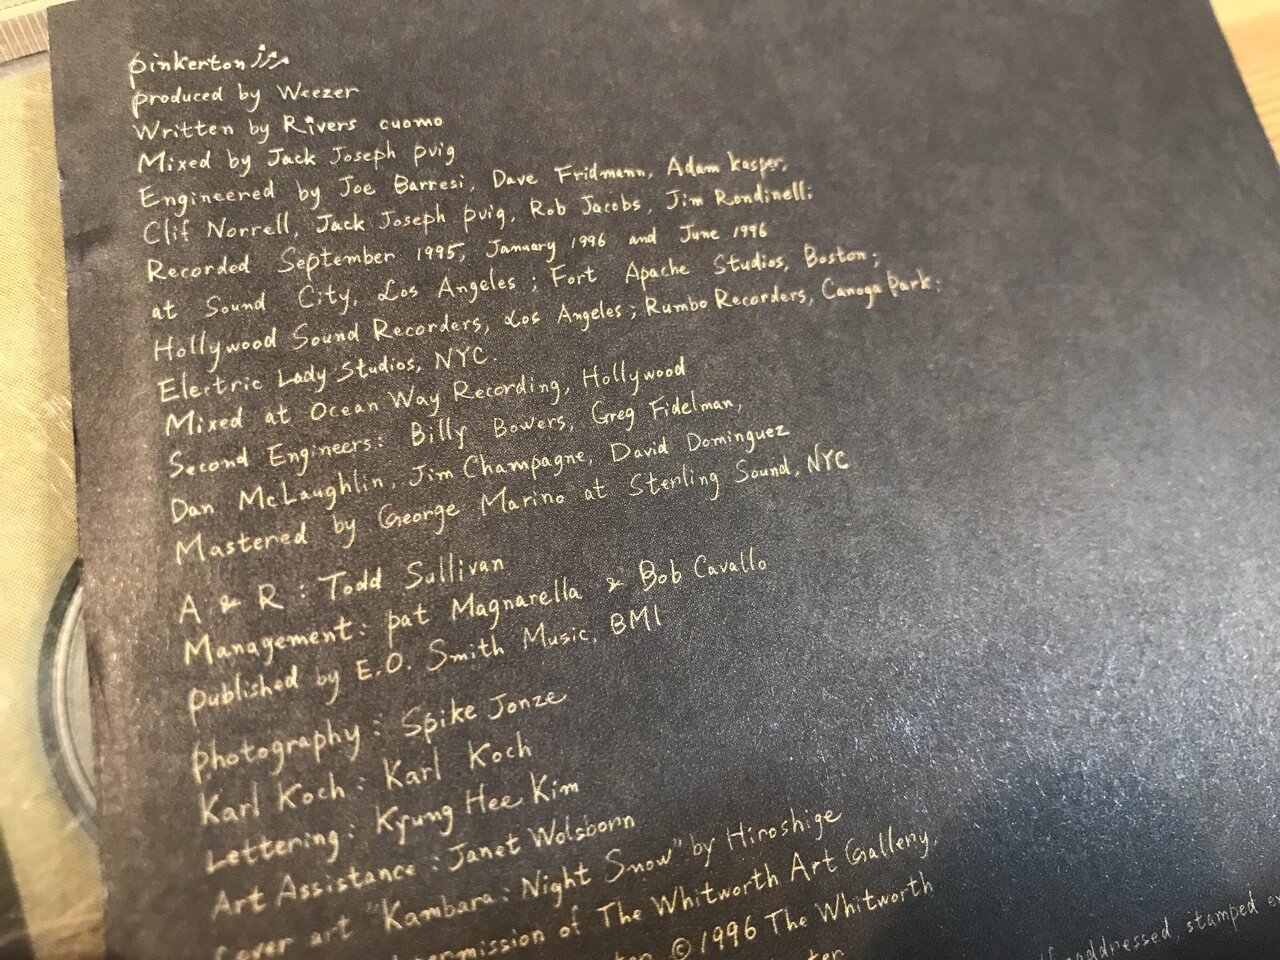 pinkerton
produced by Weezer
Written by Rivers cuomo
Mixed by Jack Joseph puig
Engineered by Joe Barresi, Dave Fridmann, Adam kasper,
Clif Norrell, Jack Joseph puig, Rob Jacobs, Jim Rondinelli
Recorded September 1995, January 1996 and June 1996
at Sound City, Los Angeles; Fort Apache Studios, Boston;
Hollywood Sound Recorders, Los Angeles; Rumbo Recorders, Canoga park;
Electric Lady Studios, NYC.
Mixed at Ocean Way Recording, Hollywood
Second Engineers: Billy Bowers, Greg Fidelman,
Dan McLaughlin, Jim Champagne, David Dominguez
Mastered by George Marino at Sterling Sound, NYC
A & R: Todd Sullivan
Management: pat Magnarella & Bob Cavallo
published by E.O. Smith Music, BMI
photography: Spike Jonze
Karl Koch: Karl Koch
Lettering: Kyung Hee Kim
Art Assistance: Janet Wolsborn
Cover art "Kambara: Night Snow" by Hiroshige
of The Whitworth Art Gallery,
© 1996 The Whitworth
addressed, stamped